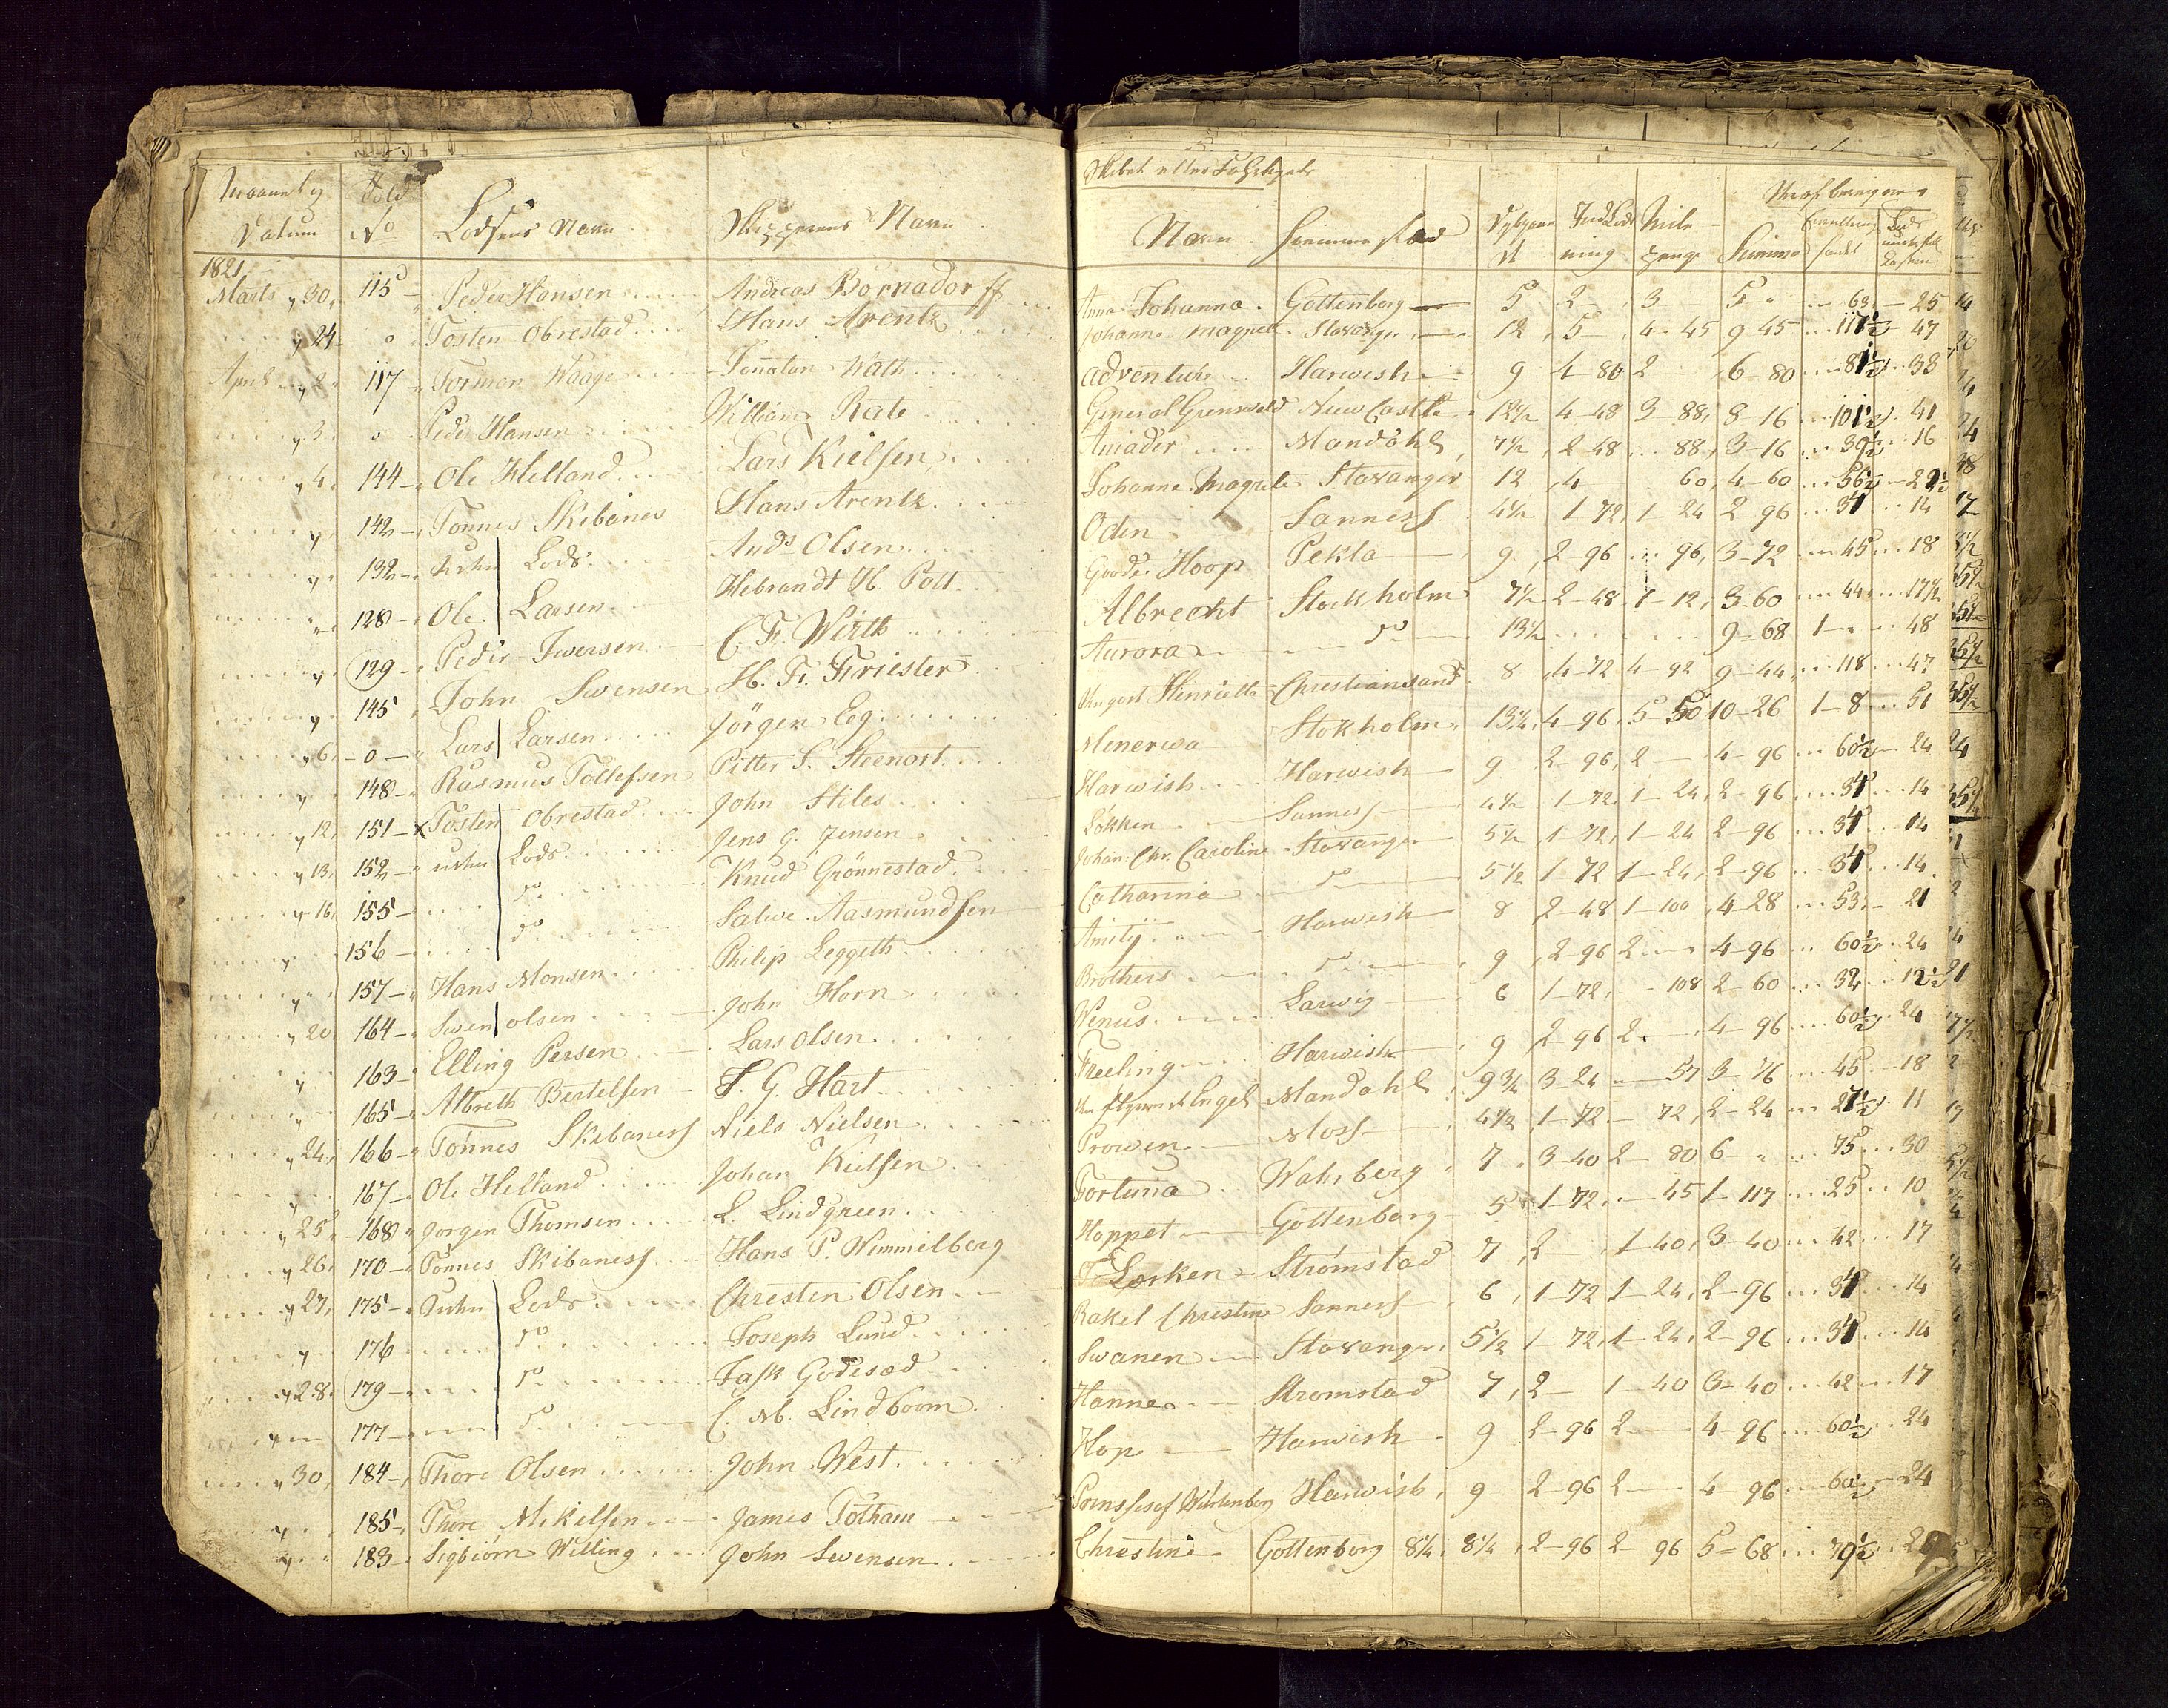 Maanet og Datum | Told No | Lodsens Navn | Skipperens Navn
1821
Marts 30 | 115 | Peder Hansen | Andreas Bornadorff
24 | o | Tosten Obrestad | Hans Arentz
April 2 | 117 | Tormon Waage | Jonatan Wath
3 | o | Peder Hansen | William Rate
4 | 144 | Ole Helland | Lars Kielsen
142 | Tønnes Skibanes | Hans Arentz
132 | Lods | Ands Olsen
128 | Ole Larsen | Hebrandt H Pott
129 | Peder Iwersen | C. Fr. Wirth
145 | John Swensen | H. Fr. Friester
6 | o | Lars Larsen | Jørgen Eeg
148 | Rasmus Tollefsen | Pitter S. Steenort
12 | 151 | x Tosten Obrestad | John Stiles
13 | 152 | Lods | Jens G. Jensen
16 | 155 | do | Knud Grönnestad
156 | do | Salwe Aasmundsen
157 | Hans Monsen | Philip Leggeth
20 | 164 | Swen Olsen | John Horn
163 | Elling Persen | Lars Olsen
165 | Albreth Bertelsen | F. G. Hart
24 | 166 | Tønnes Skibaness | Niels Nielsen
167 | Ole Helland | Johan Kielsen
25 | 168 | Jørgen Thomsen | L. Lindgreen
26 | 170 | Tønnes Skibaness | Hans P. Wimmelberg
27 | 175 | Lods | Christen Olsen
176 | do | Joseph Lund
28 | 179 | do | Task Godesæd
177 | do | C. M. Lindboom
30 | 184 | Thore Olsen | John West
185 | Thore Mikelsen | James Totham
183 | Sigbiørn Willing | John Swensen
Skibet eller Fartøyets
Navn | Hiemme stæd | Dybgaaend | IndLods ning | Mile penge | Summa
Anna Johanna | Gottenborg | 5 | 2 | 3 | 5 | 63 | 25
Johanne Magrete | Stavanger | 12 | 5 | 4 45 | 9 45 | 117½ | 47
Adventure | Harwish | 9 | 4 80 | 2 | 6 80 | 81½ | 33
General Grensweld | New Castle | 12½ | 4 48 | 3 88 | 8 16 | 101½ | 41
Aniader | Mandahl | 7½ | 2 48 | 88 | 3 16 | 39½ | 16
Johanne Magrete | Stavanger | 12 | 4 | 60 | 4 60 | 56½ | 22½
Oden | Sanness | 4½ | 1 72 | 1 24 | 2 96 | 34 | 14
Goode Hoop | Pekla | 9 | 2 96 | 96 | 3 72 | 45 | 18
Albrecht | Stockholm | 7½ | 2 48 | 1 12 | 3 60 | 44 | 17½
Aurora | do | 13½ | 9 68 | 1 | 48
Henriette | Christiansand | 8 | 4 72 | 4 92 | 9 44 | 118 | 47
Minerwa | Stokholm | 13½ | 4 96 | 5 50 | 10 26 | 1 8 | 51
Harwish | Harwish | 9 | 2 96 | 2 | 4 96 | 60½ | 24
Løkken | Sanness | 4½ | 1 72 | 1 24 | 2 96 | 34 | 14
Johan: Chr. Caroline | Stavanger | 5½ | 1 72 | 1 24 | 2 96 | 34 | 14
Catharina | do | 5½ | 1 72 | 1 24 | 2 96 | 34 | 14
Amity | Harwish | 8 | 2 48 | 1 100 | 4 28 | 53 | 21
Brothers | do | 9 | 2 96 | 2 | 4 96 | 60½ | 24
Wenus | Larwig | 6 | 1 72 | 108 | 2 60 | 32 | 12½
Freeling | Harwish | 9 | 2 96 | 2 | 4 96 | 60½ | 24
Engel | Mandahl | 9¾ | 3 24 | 57 | 3 76 | 45 | 18
Prowen | Moss | 4½ | 1 72 | 72 | 2 24 | 27½ | 11
Fortuna | Wahrberg | 7 | 3 40 | 2 80 | 6 | 75 | 30
Hoppet | Gottenborg | 5 | 1 72 | 45 | 1 117 | 25 | 10
Lærken | Strömstad | 7 | 2 | 1 40 | 3 40 | 42 | 17
Rakel Christine | Sanness | 6 | 1 72 | 1 24 | 2 96 | 34 | 14
Swanen | Stavanger | 5½ | 1 72 | 1 24 | 2 96 | 34 | 14
Hanne | Stromstad | 7 | 2 | 1 40 | 3 40 | 42 | 17
Hop | Harwish | 9 | 2 96 | 2 | 4 96 | 60½ | 24
Harwish | 9 | 2 96 | 2 | 4 96 | 60½ | 24
Christine | Gottenborg | 8¼ | 8¼ | 2 96 | 2 96 | 5 68 | 70½